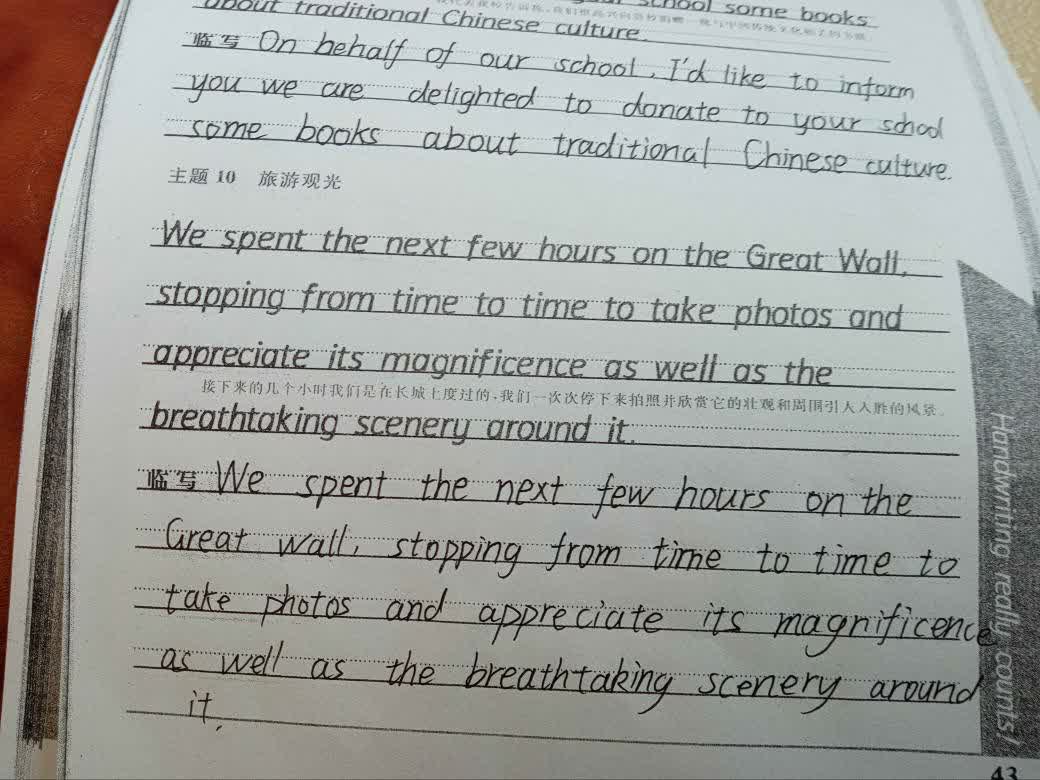 school some books
about traditional Chinese culture.
临写 On behalf of our school, I'd like to inform
you we are delighted to donate to your school
some books about traditional Chinese culture.
主题 10 旅游观光
We spent the next few hours on the Great Wall,
stopping from time to time to take photos and
appreciate its magnificence as well as the
接下来的几个小时我们是在长城上度过的,我们一次次停下来拍照并欣赏它的壮观和周围引人入胜的风景。
breathtaking scenery around it.
临写 We spent the next few hours on the
Great wall, stopping from time to time to
take photos and appreciate its magnificence
as well as the breathtaking scenery around
it.
Handwriting really counts!
43